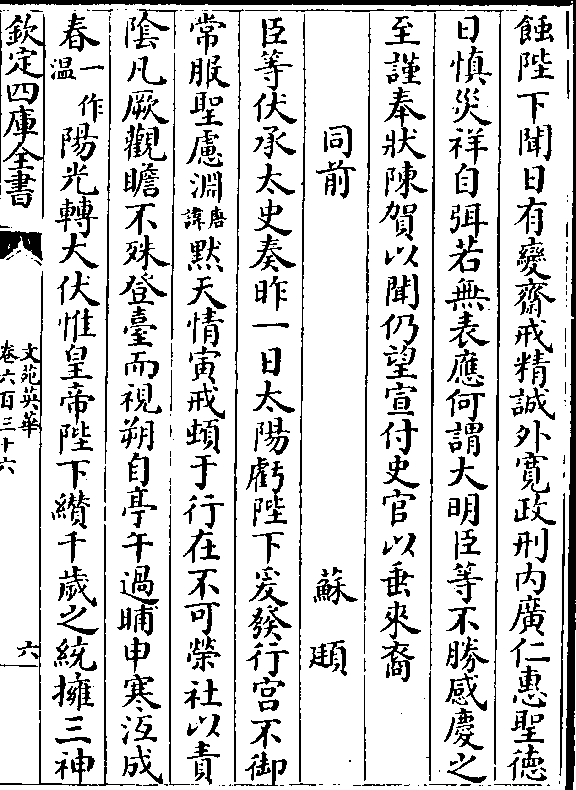 蝕陛下聞日有變齋戒精誠外寛政刑内廣仁惠聖德
日慎災祥自弭若無表應何謂大明臣等不勝感慶之
至謹奉狀陳賀以聞仍望宣付史官以垂來裔
同前 蘇頲
臣等伏承太史奏昨一日太陽虧陛下爰發行宫不御
常服聖慮淵唐諱黙天情寅戒蝢于行在不可縈社以責
隂凡厥觀瞻不殊登臺而視朔自亭午過晡申寒沍成
春一作温陽光轉大伏惟皇帝陛下纉千歲之統擁三神
欽定四庫全書
文苑英華
卷六百三十六
六